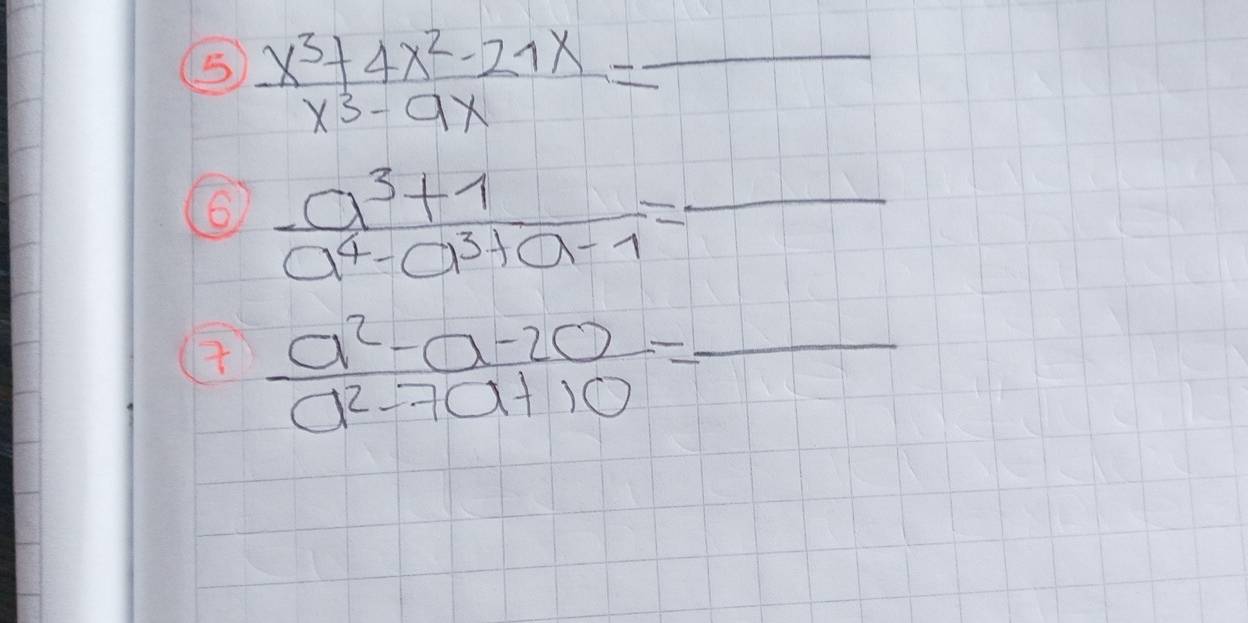 5 x³+4x²-21x =
x³-9x
6 a³+1 =
a⁴-a³+a-1
7 a²-a-20 =
a²-7a+10